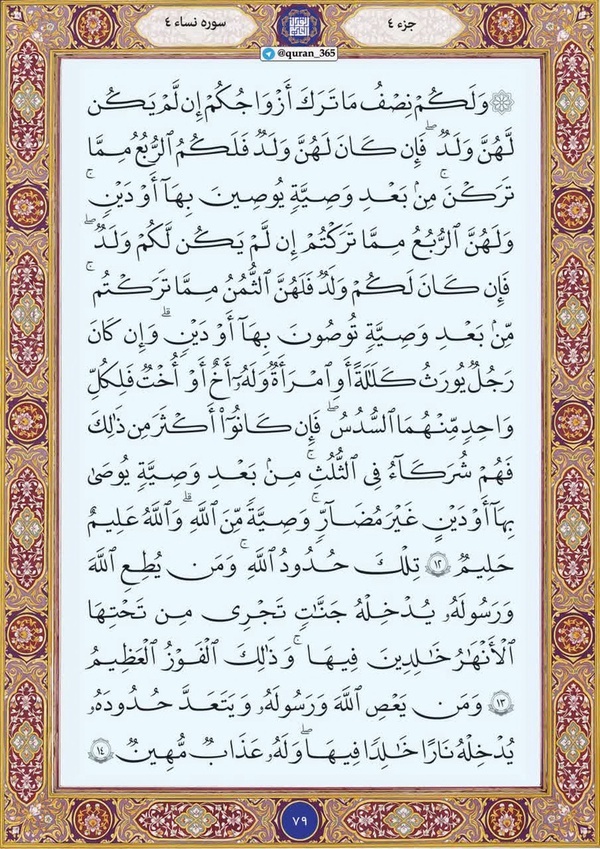 جزء ٤
سوره نساء ٤
@quran_365
۞ وَلَكُمْ نِصْفُ مَا تَرَكَ أَزْوَاجُكُمْ إِن لَّمْ يَكُن
لَّهُنَّ وَلَدٌ ۖ فَإِن كَانَ لَهُنَّ وَلَدٌ فَلَكُمُ ٱلرُّبُعُ مِمَّا
تَرَكْنَ ۚ مِنۢ بَعْدِ وَصِيَّةٍ يُوصِينَ بِهَآ أَوْ دَيْنٍ ۚ
وَلَهُنَّ ٱلرُّبُعُ مِمَّا تَرَكْتُمْ إِن لَّمْ يَكُن لَّكُمْ وَلَدٌ ۚ
فَإِن كَانَ لَكُمْ وَلَدٌ فَلَهُنَّ ٱلثُّمُنُ مِمَّا تَرَكْتُم ۚ
مِّنۢ بَعْدِ وَصِيَّةٍ تُوصُونَ بِهَآ أَوْ دَيْنٍ ۗ وَإِن كَانَ
رَجُلٌ يُورَثُ كَلَٰلَةً أَوِ ٱمْرَأَةٌ وَلَهُۥٓ أَخٌ أَوْ أُخْتٌ فَلِكُلِّ
وَٰحِدٍ مِّنْهُمَا ٱلسُّدُسُ ۚ فَإِن كَانُوٓا۟ أَكْثَرَ مِن ذَٰلِكَ
فَهُمْ شُرَكَآءُ فِى ٱلثُّلُثِ ۚ مِنۢ بَعْدِ وَصِيَّةٍ يُوصَىٰ
بِهَآ أَوْ دَيْنٍ غَيْرَ مُضَآرٍّ ۚ وَصِيَّةً مِّنَ ٱللَّهِ ۗ وَٱللَّهُ عَلِيمٌ
حَلِيمٌ ١٢ تِلْكَ حُدُودُ ٱللَّهِ ۚ وَمَن يُطِعِ ٱللَّهَ
وَرَسُولَهُۥ يُدْخِلْهُ جَنَّٰتٍ تَجْرِى مِن تَحْتِهَا
ٱلْأَنْهَٰرُ خَٰلِدِينَ فِيهَا ۚ وَذَٰلِكَ ٱلْفَوْزُ ٱلْعَظِيمُ
١٣ وَمَن يَعْصِ ٱللَّهَ وَرَسُولَهُۥ وَيَتَعَدَّ حُدُودَهُۥ
يُدْخِلْهُ نَارًا خَٰلِدًا فِيهَا ۖ وَلَهُۥ عَذَابٌ مُّهِينٌ ١٤
٧٩